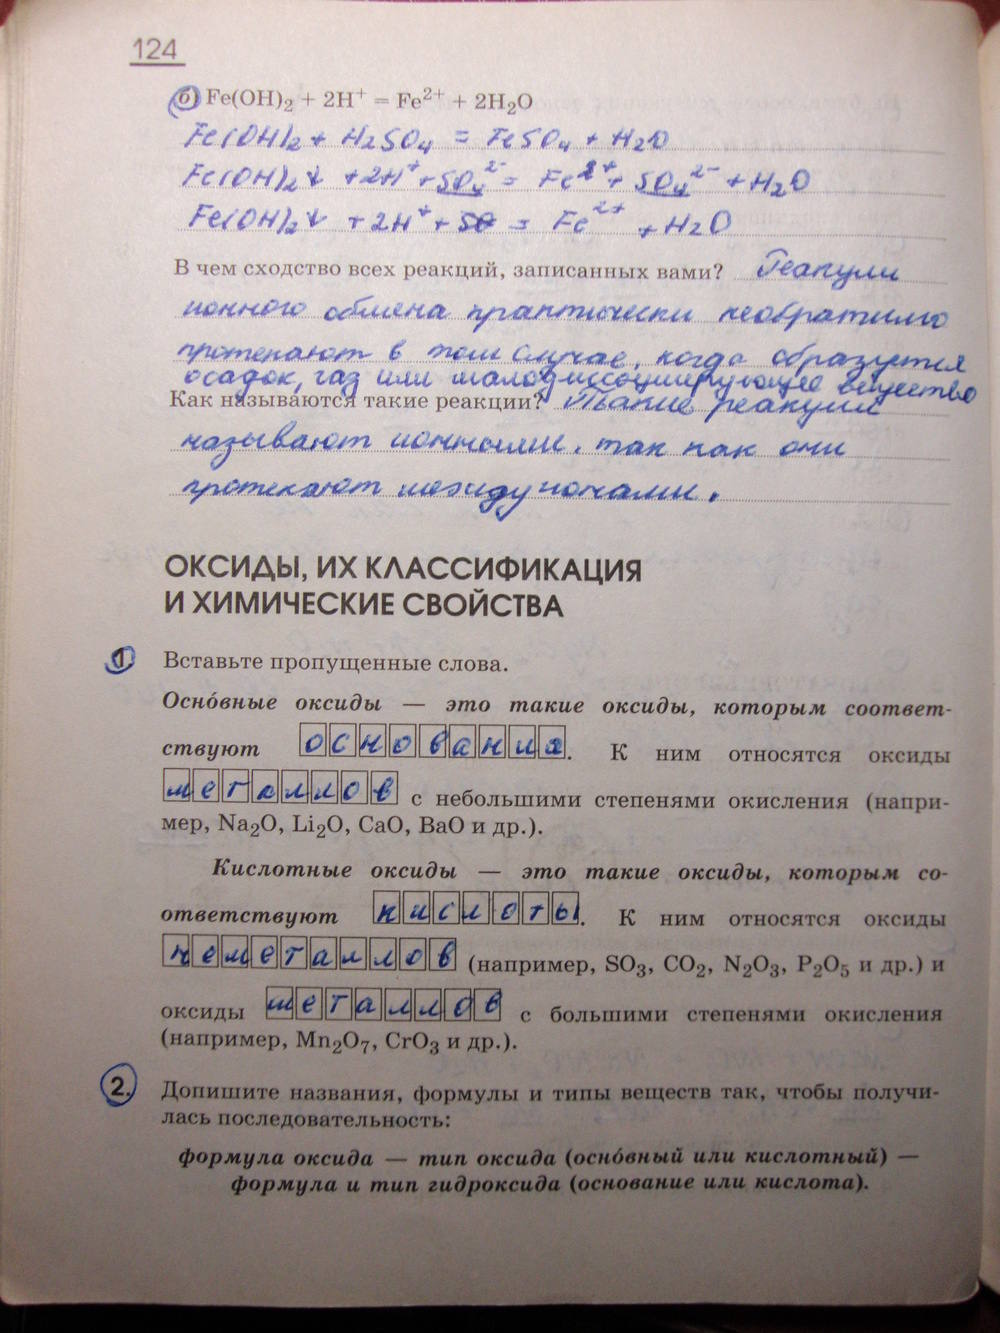 124
б) Fe(OH)₂ + 2H⁺ = Fe²⁺ + 2H₂O
Fe(OH)₂ + H₂SO₄ = FeSO₄ + H₂O
Fe(OH)₂↓ + 2H⁺ + SO₄²⁻ = Fe²⁺ + SO₄²⁻ + H₂O
Fe(OH)₂↓ + 2H⁺ + = Fe²⁺ + H₂O
В чем сходство всех реакций, записанных вами? Реакции
ионного обмена практически необратимо
протекают в том случае, когда образуется
осадок, газ или малодиссоциирующее вещество
Как называются такие реакции? Такие реакции
называют ионными, так как они
протекают между ионами.
ОКСИДЫ, ИХ КЛАССИФИКАЦИЯ
И ХИМИЧЕСКИЕ СВОЙСТВА
1. Вставьте пропущенные слова.
Оснóвные оксиды — это такие оксиды, которым соответ-
ствуют основания. К ним относятся оксиды
металлов с небольшими степенями окисления (напри-
мер, Na₂O, Li₂O, CaO, BaO и др.).
Кислотные оксиды — это такие оксиды, которым со-
ответствуют кислоты. К ним относятся оксиды
неметаллов (например, SO₃, CO₂, N₂O₃, P₂O₅ и др.) и
оксиды металлов с большими степенями окисления
(например, Mn₂O₇, CrO₃ и др.).
2. Допишите названия, формулы и типы веществ так, чтобы получи-
лась последовательность:
формула оксида — тип оксида (оснóвный или кислотный) —
формула и тип гидроксида (основание или кислота).